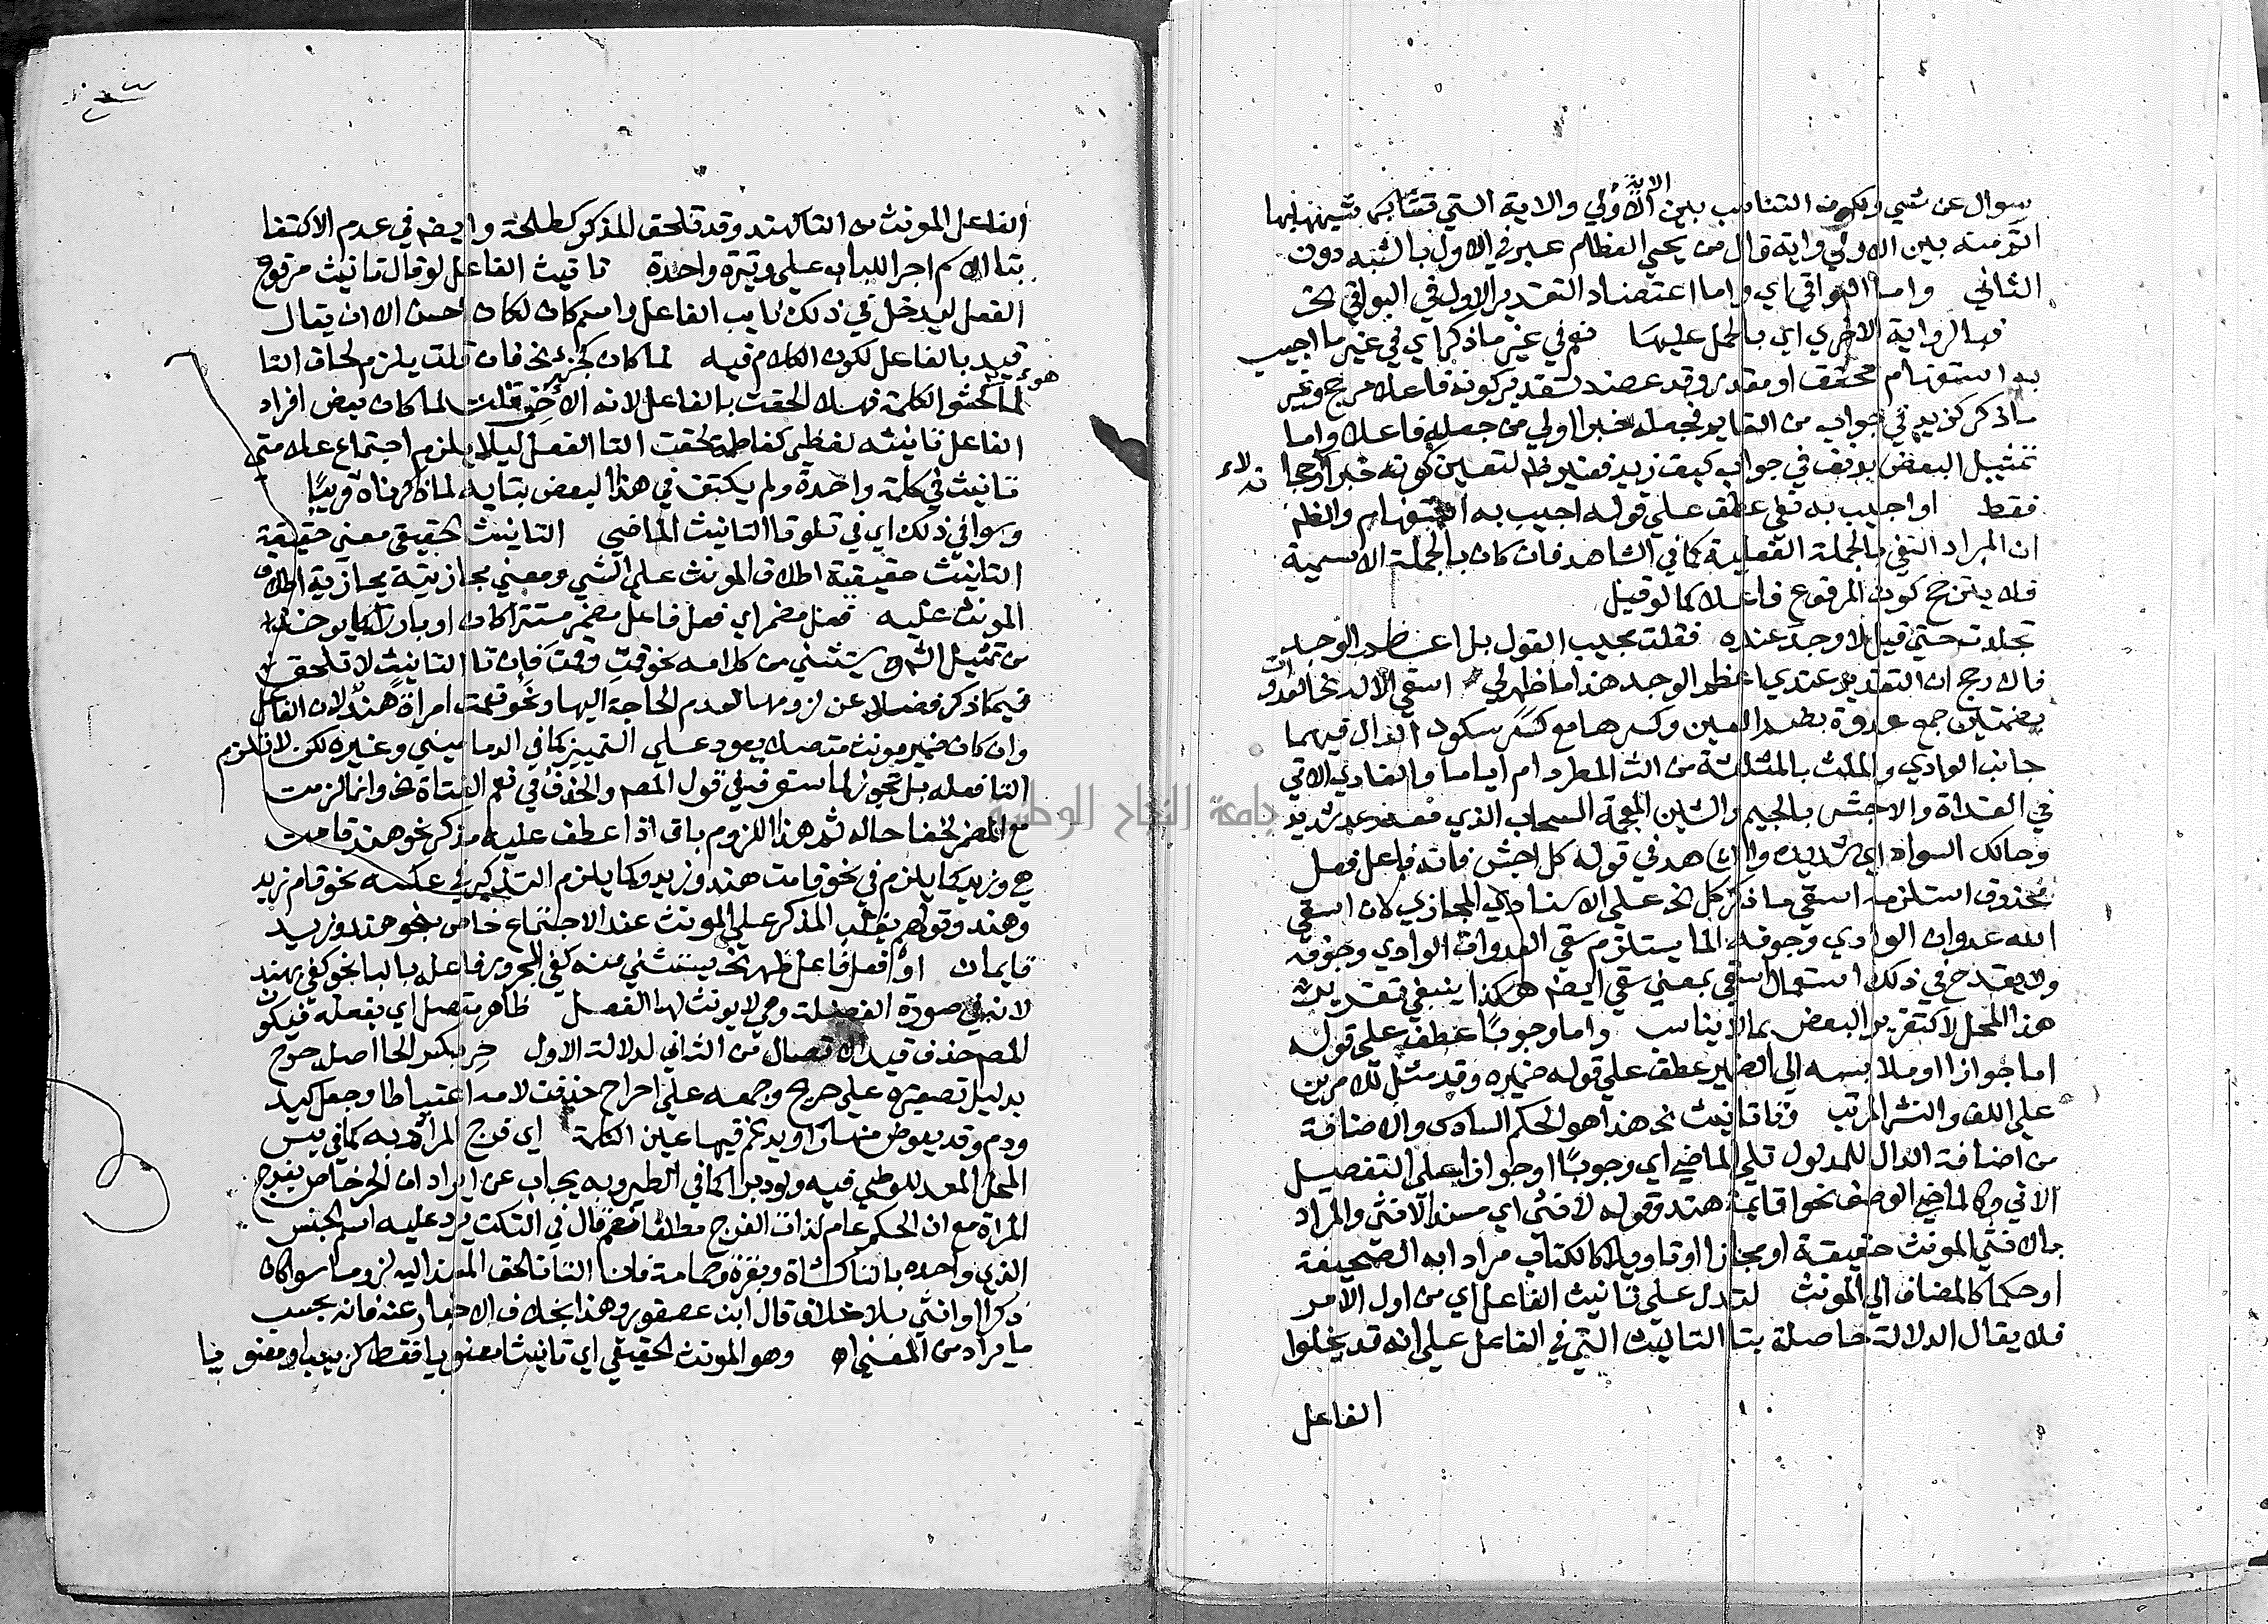 سوال عن شي ولكونه التناسب بين الاولي والاية التي تشابكها
الاية
اتزمته بين الاولي واية قال من يحي العظام عبر في الاول بالشبه دون
الثاني واما البواقي اي واما اعتضاد التقدير الاول في البواقي الخ
فبالرواية الاخري اي بالحمل عليها نعم في غير ما ذكر اي في غير ما اجيب
به استفهام محقق او مقدر وقد عضد تقدير كونه فاعلا مرجح وغير
ما ذكر كزيد في جواب من القايد فجعله خبرا اولي من جعله فاعلا واما
تمثيل البعض بدنف في جواب كيف زيد فغير ظم لتعين كونه خبرا
فقط او اجيب به نفي عطف علي قوله اجيب به استفهام والظم
ان المراد النفي بالجملة الفعلية كما في الشاهد فان كان بالجملة الاسمية
فلا يترجح كون المرفوع فاعلا كما لو قيل
تجلدت حتي قيل لا وجد عنده فقلت مجيب القول بل اعظم الوجد
فالارجح ان التقدير عندي اعظم الوجد هذا ما ظهر لي اسقي الاله الخ العدوات
بضمتين جمع عدوة بضم العين وكسرها مع سكون الدال فيهما
جانب الوادي والملث بالمثلثة من الث المطر دام اياما والغادي الاتي
في الغداة والاجش بالجيم والشين المعجمة السحاب الذي معه رعد شديد
وحالك السواد اي شديده والشاهد في قوله كل اجش فانه فاعل فعل
محذوف استلزمه اسقي ما ذكر كل الخ علي الاسناد المجازي لان اسقي
الله عدوات الوادي وجوفه الما يستلزم سقي العدوات الوادي وجوفه
ولا يقدح في ذلك استعمال اسقي بمعني سقي ايضم هكذا ينبغي تقدير
هذا المحل لا كتقرير البعض بما لا يناسب واما وجوبا عطف علي قوله
اما جوازا او ملابسه الي الضمير عطف علي قوله ضميره وقد مثل للامرين
علي اللف والنشر المرتب وتا تانيث الخ هذا هو الحكم السادس والاضافة
من اضافة الدال للمدلول تلي الماضي اي وجوبا او جوازا علي التفصيل
الاتي وكالماضي الوصف نحو اقايمة هند وقوله لانثي اي مسند الانثي والمراد
بالانثي المونث حقيقة او مجازا او تاويلا كالكتاب مرادا به الصحيفة
او حكما كالمضاف الي المونث لتدل علي تانيث الفاعل اي من اول الامر
فلا يقال الدلالة حاصلة بتا التانيث التي في الفاعل علي انه قد يخلوا
الفاعل
الفاعل المونث من التا كهند وقد تلحق المذكر كطلحة وايضم في عدم الاكتفا
بتا الاسم اجرا للباب علي وتيرة واحدة تانيث الفاعل لو قال تانيث مرفوع
الفعل ليدخل في ذلك نايب الفاعل واسم كان لكان احسن الا ان يقال
قيد بالفاعل لكون الكلام فيه لما كان كجزئه الخ فان قلت يلزم لحاق التا
لما هو كحشو الكلمة فهلا لحقت بالفاعل لانه الاخر قلت لما كان بعض افراد
الفاعل تانيثه لفظي كفاطمة لحقت التا الفعل ليلا يلزم اجتماع علامتي
تانيث في كلمة واحدة ولم يكتف في هذا البعض بتايه لما ذكرناه قريبا
وسوا في ذلك اي في تلو تا التانيث الماضي التانيث الحقيقي معني حقيقية
التانيث حقيقية اطلاق المونث علي الشي ومعني مجازيته مجازية اطلاق
المونث عليه فعل مضمر اي فعل فاعل مضمر مستترا كان او بارزا
من تمثيل الش ويستثني من كلامه نحو قمت وقمت فان تا التانيث لا تلحق
فيما ذكر فضلا عن لزومها لعدم الحاجة اليها ونحو نعمت امراة هند لان الفاعل
وان كان ضمير مونث متصلا يعود علي التمييز كما في الدماميني وغيره لكن لا تلزم
التا فعله بل تجوز لما ستعرفه في قول المصم والحذف في نعم الفتاة الخ وانما لزمت
مع المضمر لخفا حاله ثم هذا اللزوم باق اذا عطف عليه مذكر نحو هند قامت
هي وزيد كما يلزم في نحو قامت هند وزيد وكما يلزم التذكير في عكسه نحو قام زيد
وهند وقولهم يغلب المذكر علي المونث عند الاجتماع خاص بنحو هند وزيد
قايمان او افعل فاعل ظهر الخ يستثني منه كفي المجرور فاعله بالبا نحو كفي بهند
لانه في صورة الفضلة وهي لا يونث لها الفعل ظاهر متصل اي بفعله فيكون
المصم حذف قيد الاتصال من الثاني لدلالة الاول حر بكسر الحا اصله حرح
بدليل تصغيره علي حريح وجمعه علي احراح حذفت لامه اعتباطا وجعل كيد
ودم وقد يعوض منها را ويدغم فيها عين الكلمة اي فرج المراة كما في يس
المحل المعد للوطي فيه ولو دبرا كما في الطير وبه يجاب عن ايراد ان الحر خاص بفرج
المراة مع ان الحكم عام لذات الفرج مطلقا نعم قال في النكت يرد عليه اسم الجنس
الذي واحده بالتا كشاة وبقرة وحمامة فان التا تلحق المسند اليه لزوما سوا كان
ذكرا او انثي بلا خلاف قال ابن عصفور وهذا بخلاف الاخبار عنه فانه بحسب
ما يراد من المعني اه وهو المونث الحقيقي اي تانيثا معنويا فقط كزينب او معنويا